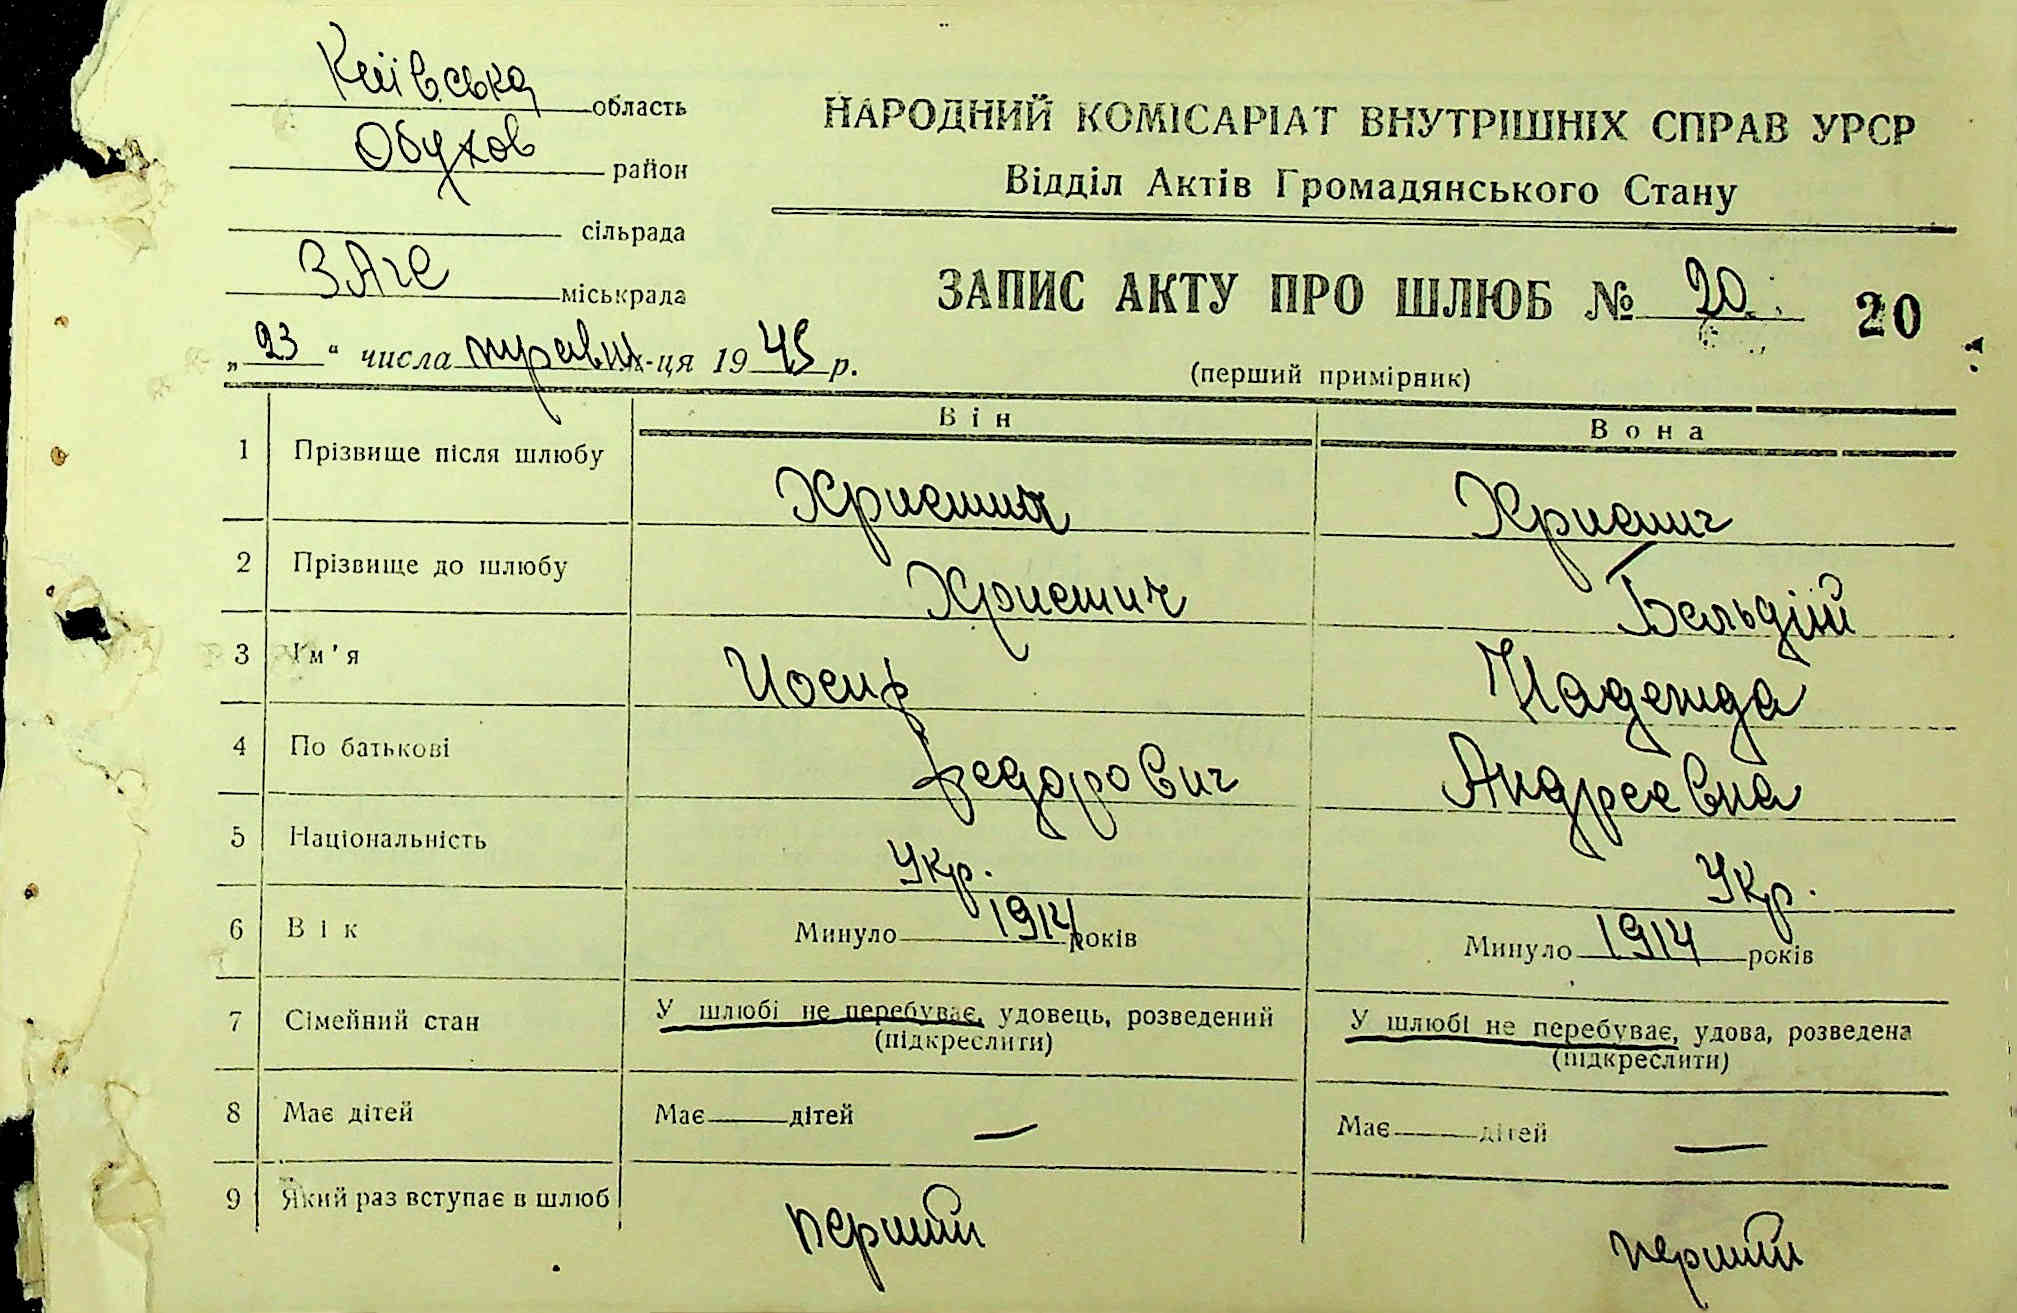 Київська область
Обухов район
сільрада
ЗАГС міськрада
„23“ числа травня м-ця 1945 р.
НАРОДНИЙ КОМІСАРІАТ ВНУТРІШНІХ СПРАВ УРСР
Відділ Актів Громадянського Стану
ЗАПИС АКТУ ПРО ШЛЮБ № 20 20
(перший примірник)
Він Вона
1 Прізвище після шлюбу Хриенич Хриенич
2 Прізвище до шлюбу Хриенич Бельдій
3 Ім'я Иосиф Надежда
4 По батькові Федорович Андреевна
5 Національність Укр. Укр.
6 Вік Минуло 1914 років Минуло 1914 років
7 Сімейний стан У шлюбі не перебуває, удовець, розведений У шлюбі не перебуває, удова, розведена
(підкреслити) (підкреслити)
8 Має дітей Має — дітей — Має — дітей —
9 Який раз вступає в шлюб перший перший